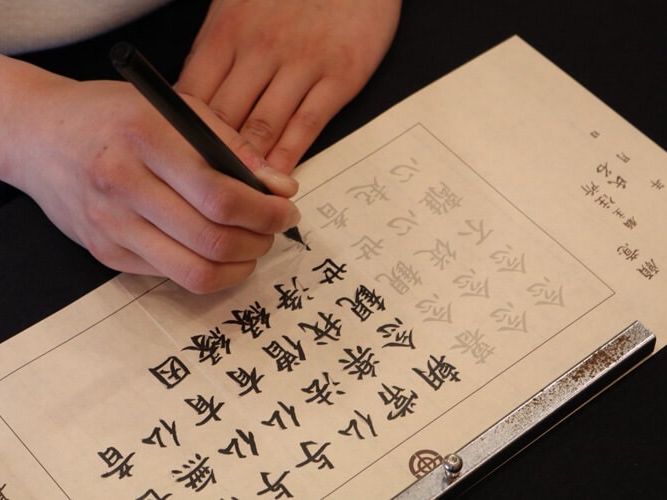 世音
無仏
与仏有因
与仏有縁
仏法僧縁
常楽我浄
朝念観世
暮念観世音
念念従心起
念念不離心
願意
願主住所氏名
年月日